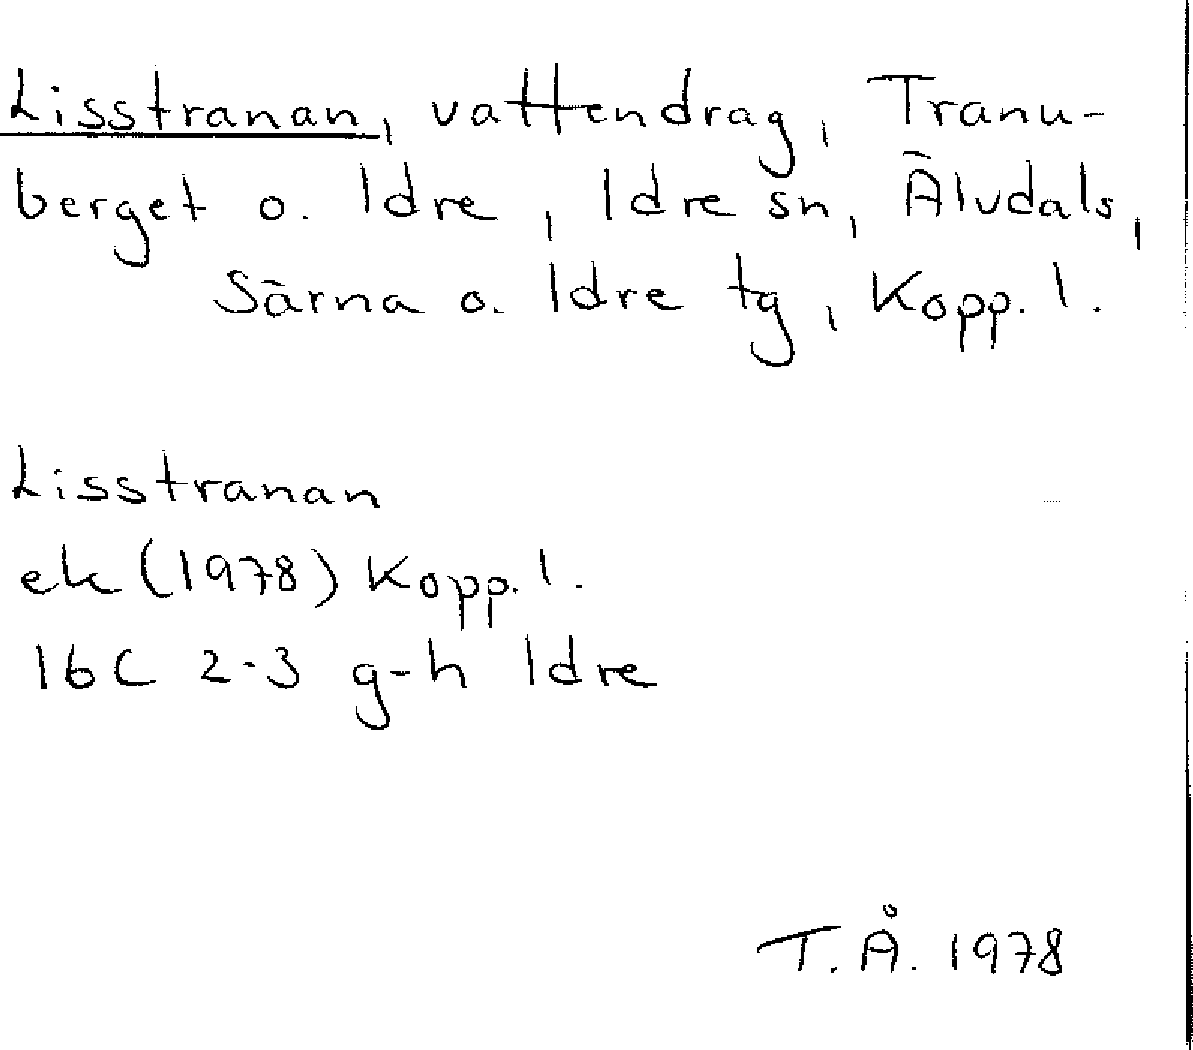 Lisstranan, vattendrag, Tranu-
berget o. Idre, Idre sn, Älvdals,
Särna o. Idre tg, Kopp. l.
Lisstranan
ek (1978) Kopp. l.
16C 2-3 g-h Idre
T.Å. 1978